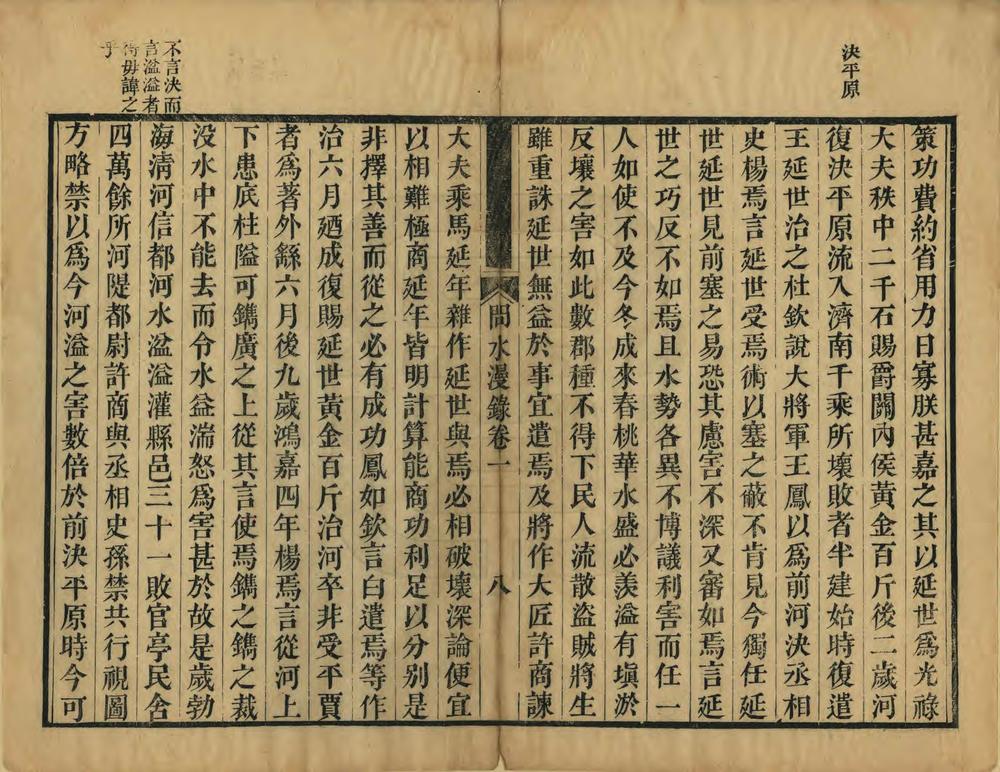 決平原
策功費約省用力日寡朕甚嘉之其以延世爲光祿
大夫秩中二千石賜爵關內侯黃金百斤後二歲河
復決平原流入濟南千乘所壞敗者半建始時復遣
王延世治之杜欽說大將軍王鳳以爲前河決丞相
史楊焉言延世受焉術以塞之蔽不肯見今獨任延
世延世見前塞之易恐其慮害不深又審如焉言延
世之巧反不如焉且水勢各異不博議利害而任一
人如使不及今冬成來春桃華水盛必羨溢有塡淤
反壞之害如此數郡種不得下民人流散盜賊將生
雖重誅延世無益於事宜遣焉及將作大匠許商諫
問水漫錄卷一
八
大夫乘馬延年雜作延世與焉必相破壞深論便宜
以相難極商延年皆明計算能商功利足以分別是
非擇其善而從之必有成功鳳如欽言白遣焉等作
治六月廼成復賜延世黃金百斤治河卒非受平賈
者爲著外繇六月後九歲鴻嘉四年楊焉言從河上
下患底柱隘可鐫廣之上從其言使焉鐫之鐫之裁
没水中不能去而令水益湍怒爲害甚於故是歲勃
海清河信都河水湓溢灌縣邑三十一敗官亭民舍
四萬餘所河隄都尉許商與丞相史孫禁共行視圖
方略禁以爲今河溢之害數倍於前決平原時今可
不言決而
言湓溢者
尚毋諱之
乎